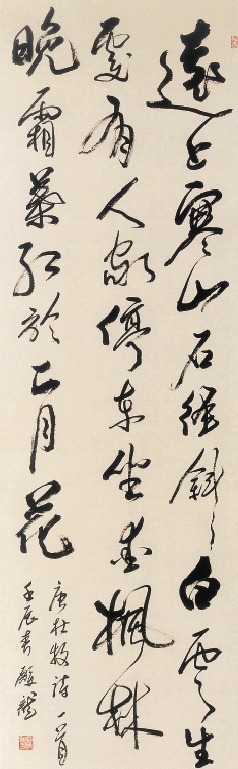 遠上寒山石徑斜白雲生
處有人家停車坐愛楓林
晚霜葉紅於二月花
唐杜牧詩一首
壬辰書